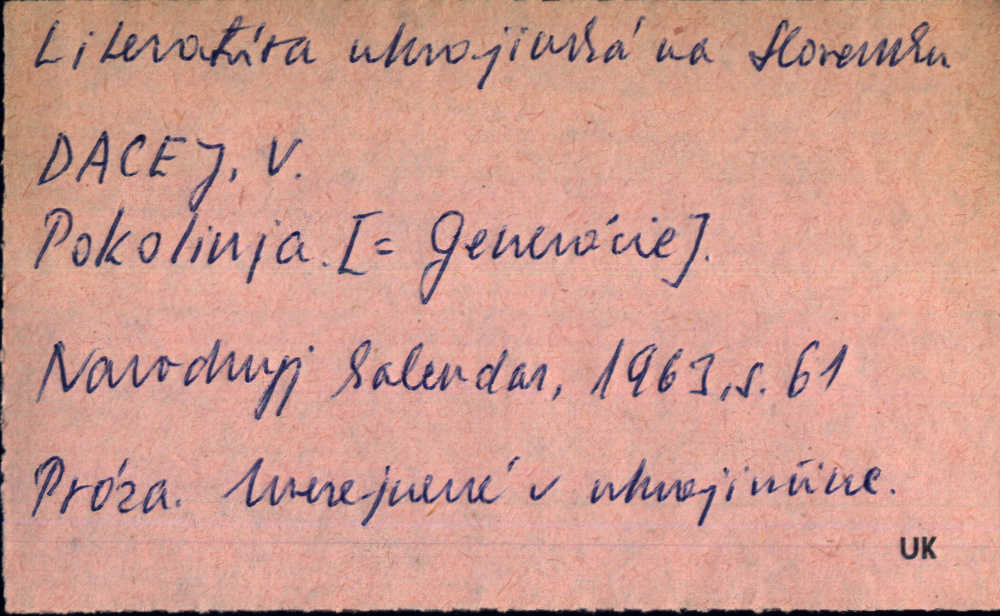 Literatúra ukrajinská na Slovensku
DACEJ, V.
Pokolinja. [= Generácie].
Narodnyj kalendar, 1963, s. 61
Próza. Uverejnené v ukrajinčine.
UK